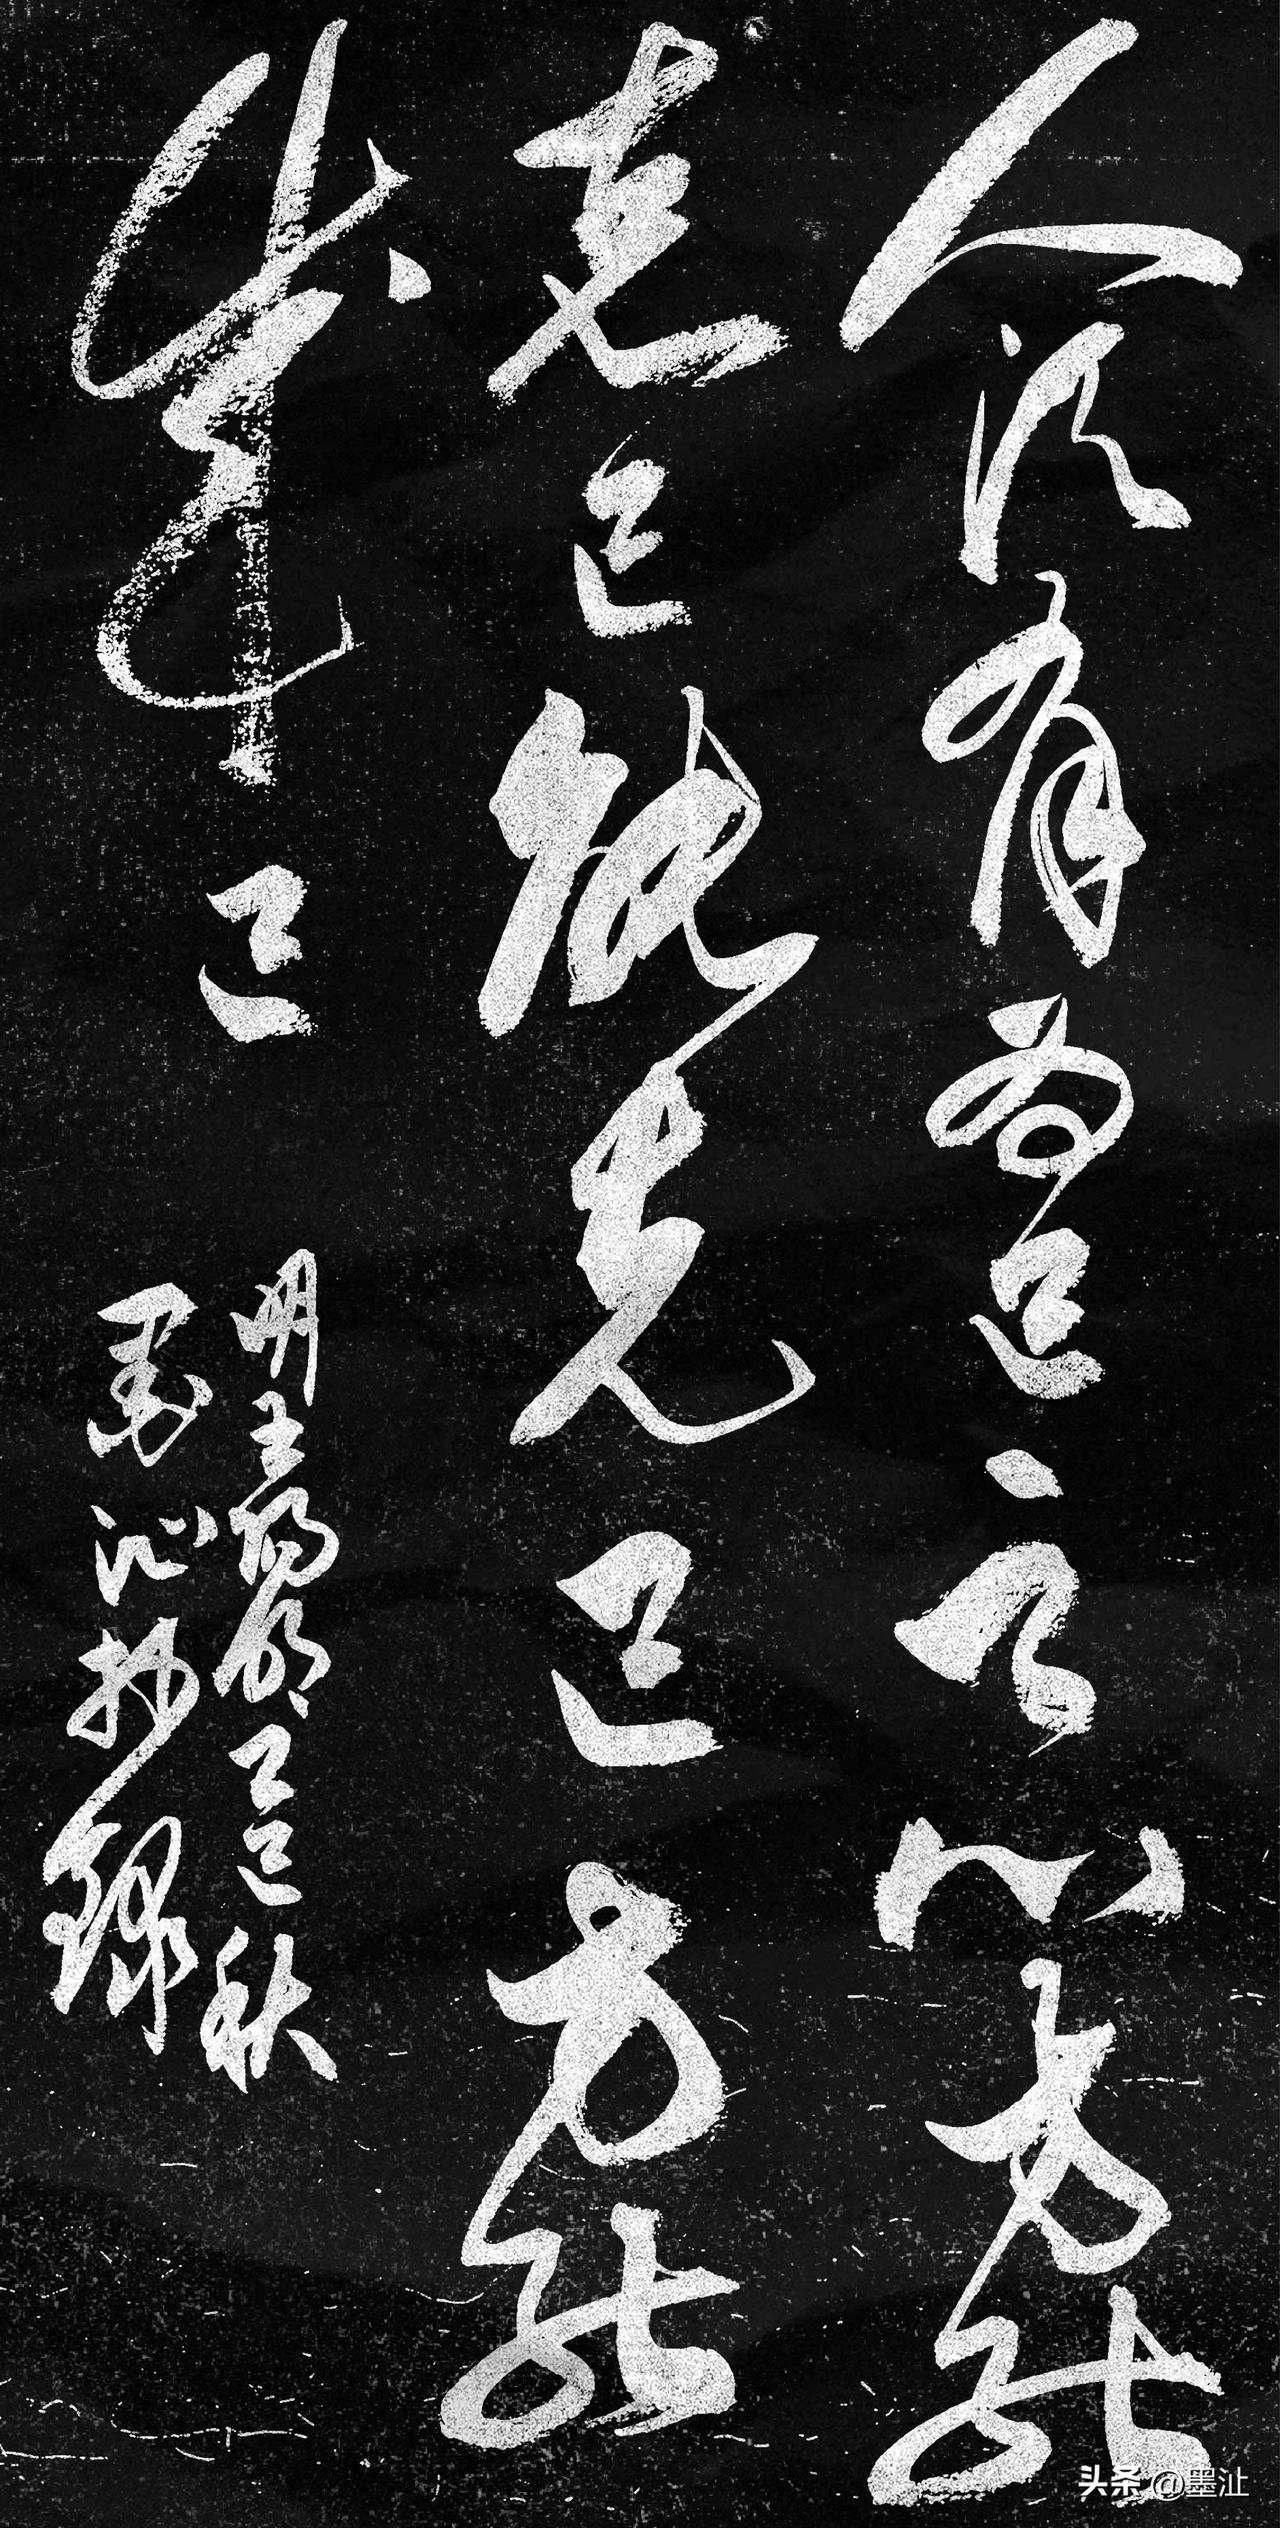 人须有为己之心方能
克己能克己方能
成己
明王阳明句己巳秋
墨沚扬録
头条 @墨沚